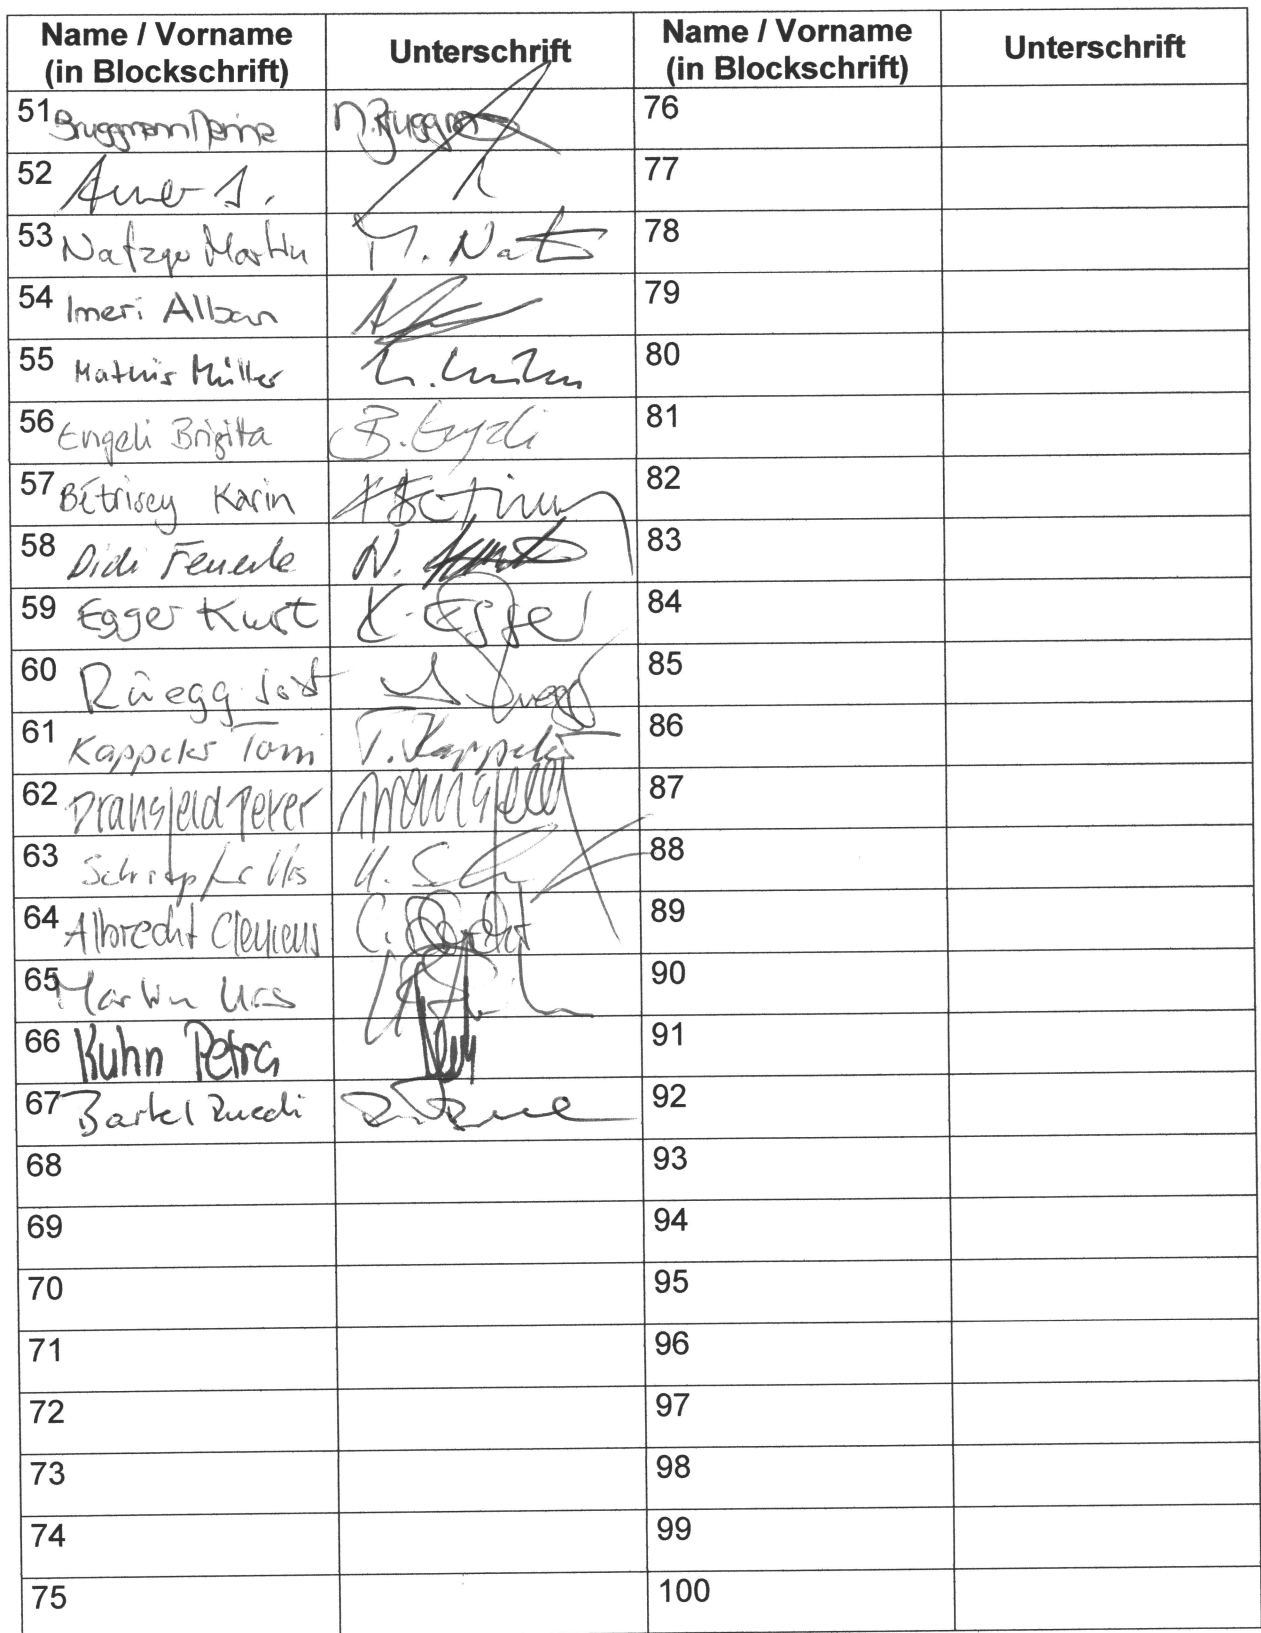 Name / Vorname (in Blockschrift) Unterschrift Name / Vorname (in Blockschrift) Unterschrift
51 Bruggmann 76
52 77
53 Martin M. Nat 78
54 Imeri Alban 79
55 Mathis Müller 80
56 Engeli Brigitta B. Engeli 81
57 Bétrisey Karin 82
58 Didi Feuerle 83
59 Egger Kurt K. Egger 84
60 Rüegg Jost 85
61 Kappeler Toni T. Kappeler 86
62 Dransfeld Peter 87
63 Schrepfer Urs 88
64 Albrecht Clemens 89
65 Martin Urs 90
66 Kuhn Petra 91
67 Bartel Ruedi 92
68 93
69 94
70 95
71 96
72 97
73 98
74 99
75 100